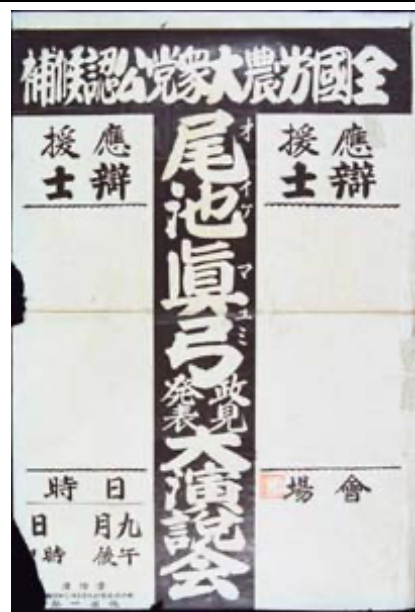 全國労農大衆党公認候補
應援
辯士
尾池眞弓
オイケマユミ
政見
発表
大演説会
應援
辯士
會場
日時
九月 日
午後 時